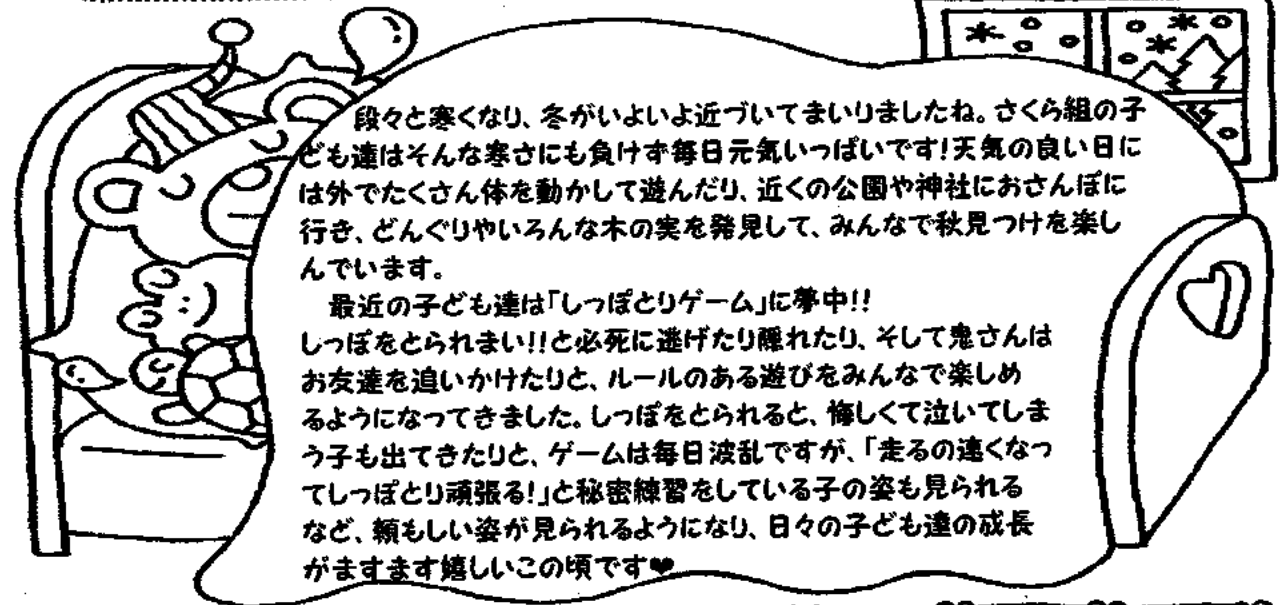 段々と寒くなり、冬がいよいよ近づいてまいりましたね。さくら組の子
ども達はそんな寒さにも負けず毎日元気いっぱいです!天気の良い日に
は外でたくさん体を動かして遊んだり、近くの公園や神社におさんぽに
行き、どんぐりやいろんな木の実を発見して、みんなで秋見つけを楽し
んでいます。
最近の子ども達は「しっぽとりゲーム」に夢中!!
しっぽをとられまい!!と必死に逃げたり隠れたり、そして鬼さんは
お友達を追いかけたりと、ルールのある遊びをみんなで楽しめ
るようになってきました。しっぽをとられると、悔しくて泣いてしま
う子も出てきたりと、ゲームは毎日波乱ですが、「走るの速くなっ
てしっぽとり頑張る!」と秘密練習をしている子の姿も見られる
など、頼もしい姿が見られるようになり、日々の子ども達の成長
がますます嬉しいこの頃です♥